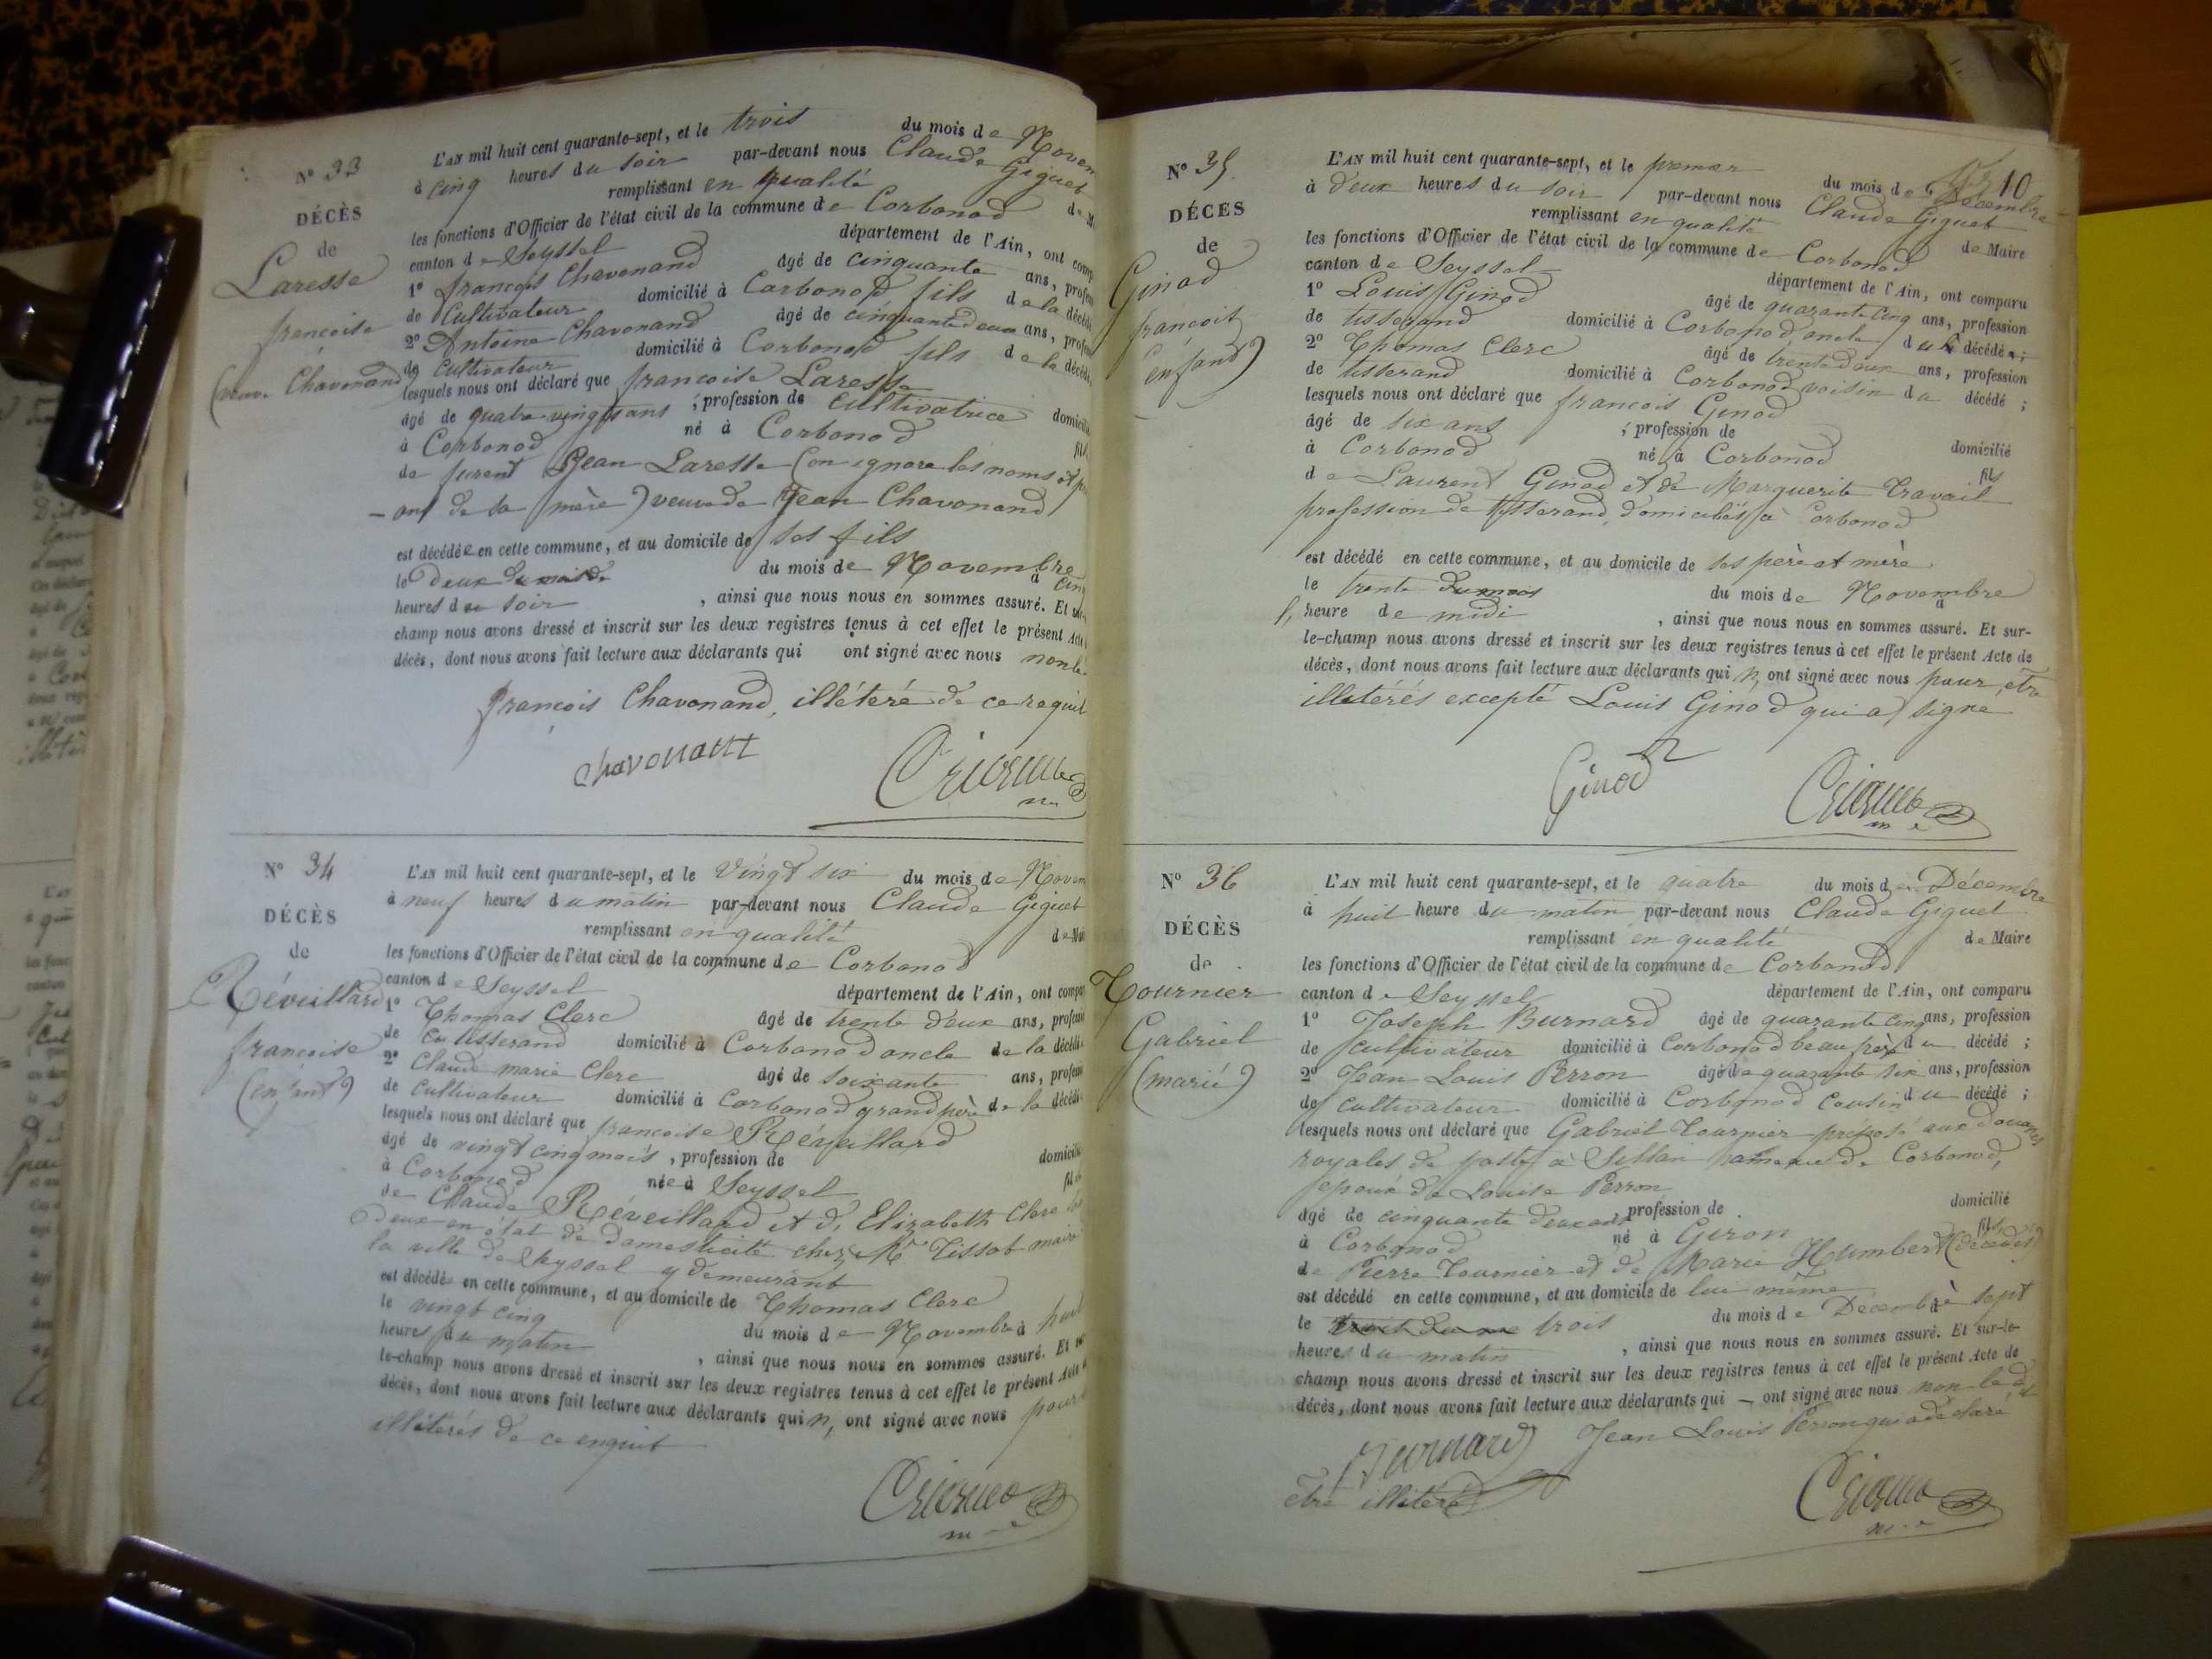 N° 33
DÉCÈS
de
Laresse
françoise
(veuve Chavonand
L'AN mil huit cent quarante-sept, et le trois du mois de Novem
à cinq heures du soir par-devant nous Claude Giguet
remplissant en qualité de M
les fonctions d'Officier de l'état civil de la commune de Corbonod
canton de Seyssel département de l'Ain, ont comp
1° françois Chavonand âgé de cinquante ans, profes
de Cultivateur domicilié à Corbonod fils de la décéd
2° Antoine Chavonand âgé de cinquante deux ans, profes
de cultivateur domicilié à Corbonod fils de la décéd
lesquels nous ont déclaré que francoise Laresse
âgé de quatre vingts ans ; profession de cultivatrice domicili
à Corbonod né à Corbonod fil
de furent Jean Laresse (on ignore les noms et pr
- oms de sa mère) veuve de Jean Chavonand
est décédée en cette commune, et au domicile de ses fils
le Deux du mois de du mois de Novembre à cinq
heures du soir , ainsi que nous nous en sommes assuré. Et sur-
champ nous avons dressé et inscrit sur les deux registres tenus à cet effet le présent Acte
décès, dont nous avons fait lecture aux déclarants qui ont signé avec nous non le
françois Chavonand, illétéré de ce requis
Chavonant
N° 34
DÉCÈS
de
Réveillard
francoise
(enfant)
L'AN mil huit cent quarante-sept, et le Vingt six du mois de Novem
à neuf heures du matin par-devant nous Claude Giguet
remplissant en qualité de Mai
les fonctions d'Officier de l'état civil de la commune de Corbonod
canton de Seyssel département de l'Ain, ont compa
1° Thomas Clerc âgé de trente deux ans, professi
de tisserand domicilié à Corbonod oncle de la décédé
2° Claude marie Clerc âgé de soixante ans, professi
de cultivateur domicilié à Corbonod grand père de la décédé
lesquels nous ont déclaré que francoise Réveillard
âgé de vingt cinq mois , profession de domicili
à Corbonod née à Seyssel fil
de Claude Réveillard et d, Elizabeth Clerc
Deux en état de domesticité chez Mr Tissot maire
la ville de Seyssel y demeurant
est décédé en cette commune, et au domicile de Thomas Clerc
le vingt cinq du mois de Novembre à huit
heures du matin , ainsi que nous nous en sommes assuré. Et sur
le-champ nous avons dressé et inscrit sur les deux registres tenus à cet effet le présent Acte d
décès, dont nous avons fait lecture aux déclarants qui n, ont signé avec nous pour
illétérés de ce enquit
N° 35.
DÉCÈS
de
Ginod
françois
(enfant)
10
L'AN mil huit cent quarante-sept, et le premier du mois de Décembre
à deux heures du soir par-devant nous Claude Giguet
remplissant en qualité de Maire
les fonctions d'Officier de l'état civil de la commune de Corbonod
canton de Seyssel département de l'Ain, ont comparu
1° Louis Ginod âgé de quarante cinq ans, profession
de tisserand domicilié à Corbonod, oncle du décédé ;
2° Thomas Clerc âgé de trente deux ans, profession
de tisserand domicilié à Corbonod voisin du décédé ;
lesquels nous ont déclaré que françois Ginod
âgé de six ans ; profession de domicilié
à Corbonod né à Corbonod fils
de Laurent Ginod et de Marguerite Travail
profession de tisserand, domiciliés à Corbonod
est décédé en cette commune, et au domicile de ses père et mère
le trente du mois du mois de Novembre à
l, heure de midi , ainsi que nous nous en sommes assuré. Et sur-
le-champ nous avons dressé et inscrit sur les deux registres tenus à cet effet le présent Acte de
décès, dont nous avons fait lecture aux déclarants qui n, ont signé avec nous pour etre
illétérés excepté Louis Ginod qui a signe
Ginod
N° 36
DÉCÈS
de
Tournier
Gabriel
(marié)
L'AN mil huit cent quarante-sept, et le quatre du mois de Décembre
à huit heure du matin par-devant nous Claude Giguet
remplissant en qualité de Maire
les fonctions d'Officier de l'état civil de la commune de Corbonod
canton de Seyssel département de l'Ain, ont comparu
1° Joseph Burnard âgé de quarante cinq ans, profession
de cultivateur domicilié à Corbonod beau frère du décédé ;
2° Jean Louis Perron âgé de quarante six ans, profession
de cultivateur domicilié à Corbonod Cousin du décédé ;
lesquels nous ont déclaré que Gabriel Tournier préposé aux douanes
royales de poste à Sillan hameau de Corbonod,
époux de Louise Perron
âgé de cinquante deux ans profession de domicilié
à Corbonod né à Giron fils
de Pierre Tournier et de Marie Humbert (décédés)
est décédé en cette commune, et au domicile de lui même
le trois du mois de Décembre à sept
heures du matin , ainsi que nous nous en sommes assuré. Et sur-le-
champ nous avons dressé et inscrit sur les deux registres tenus à cet effet le présent Acte de
décès, dont nous avons fait lecture aux déclarants qui — ont signé avec nous non le dit
Jean Louis Perron qui a déclaré
Burnard
etre illétéré